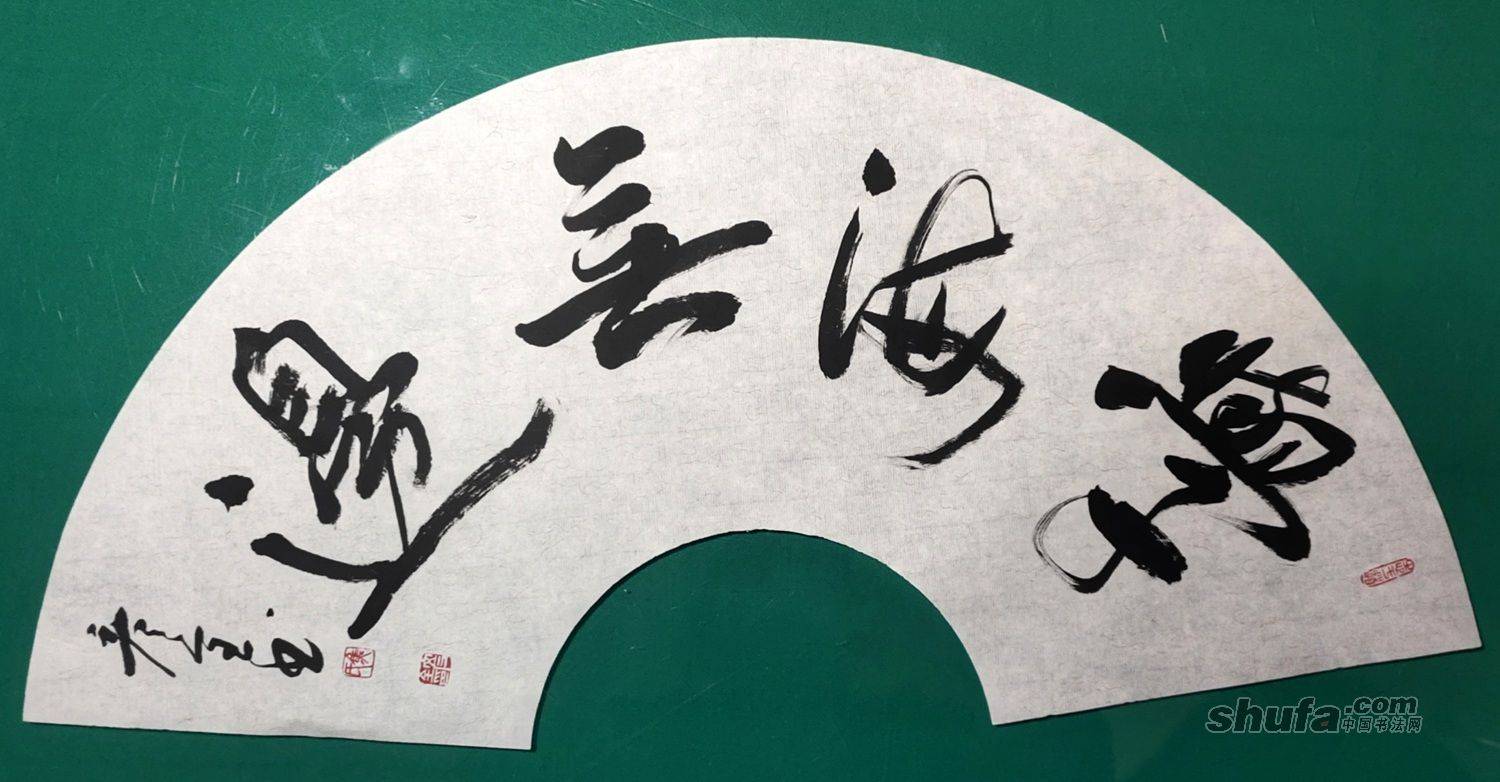 學海無邊
shufa.com
中国书法网